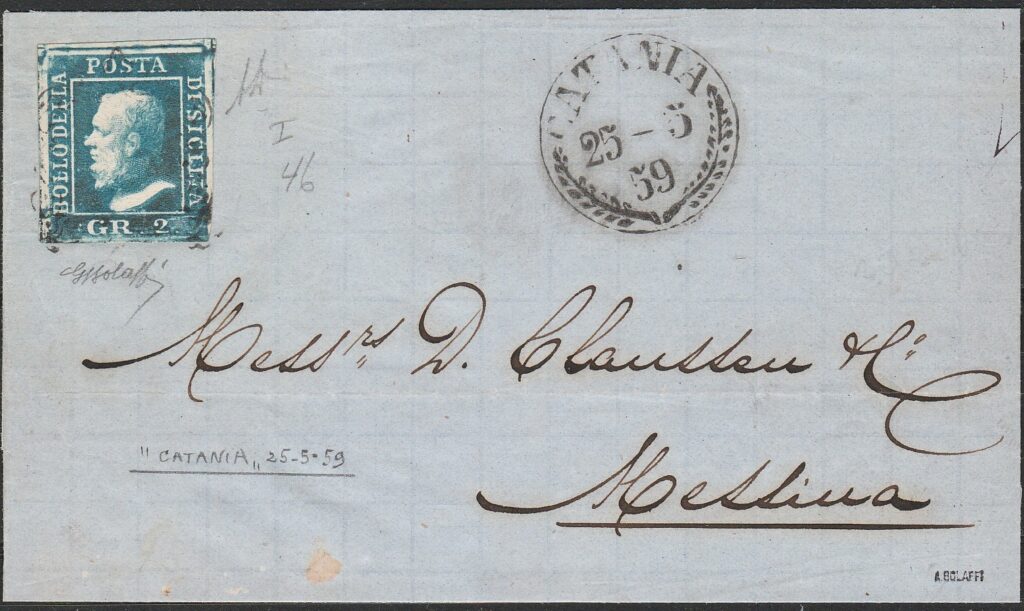 POSTA
BOLLO DELLA
DI SICILIA
GR. 2.
1A
I
46
CATANIA
25 - 5
59
Messrs D. Claussen & Co
Messina
"CATANIA" 25-5-59
A. BOLAFFI